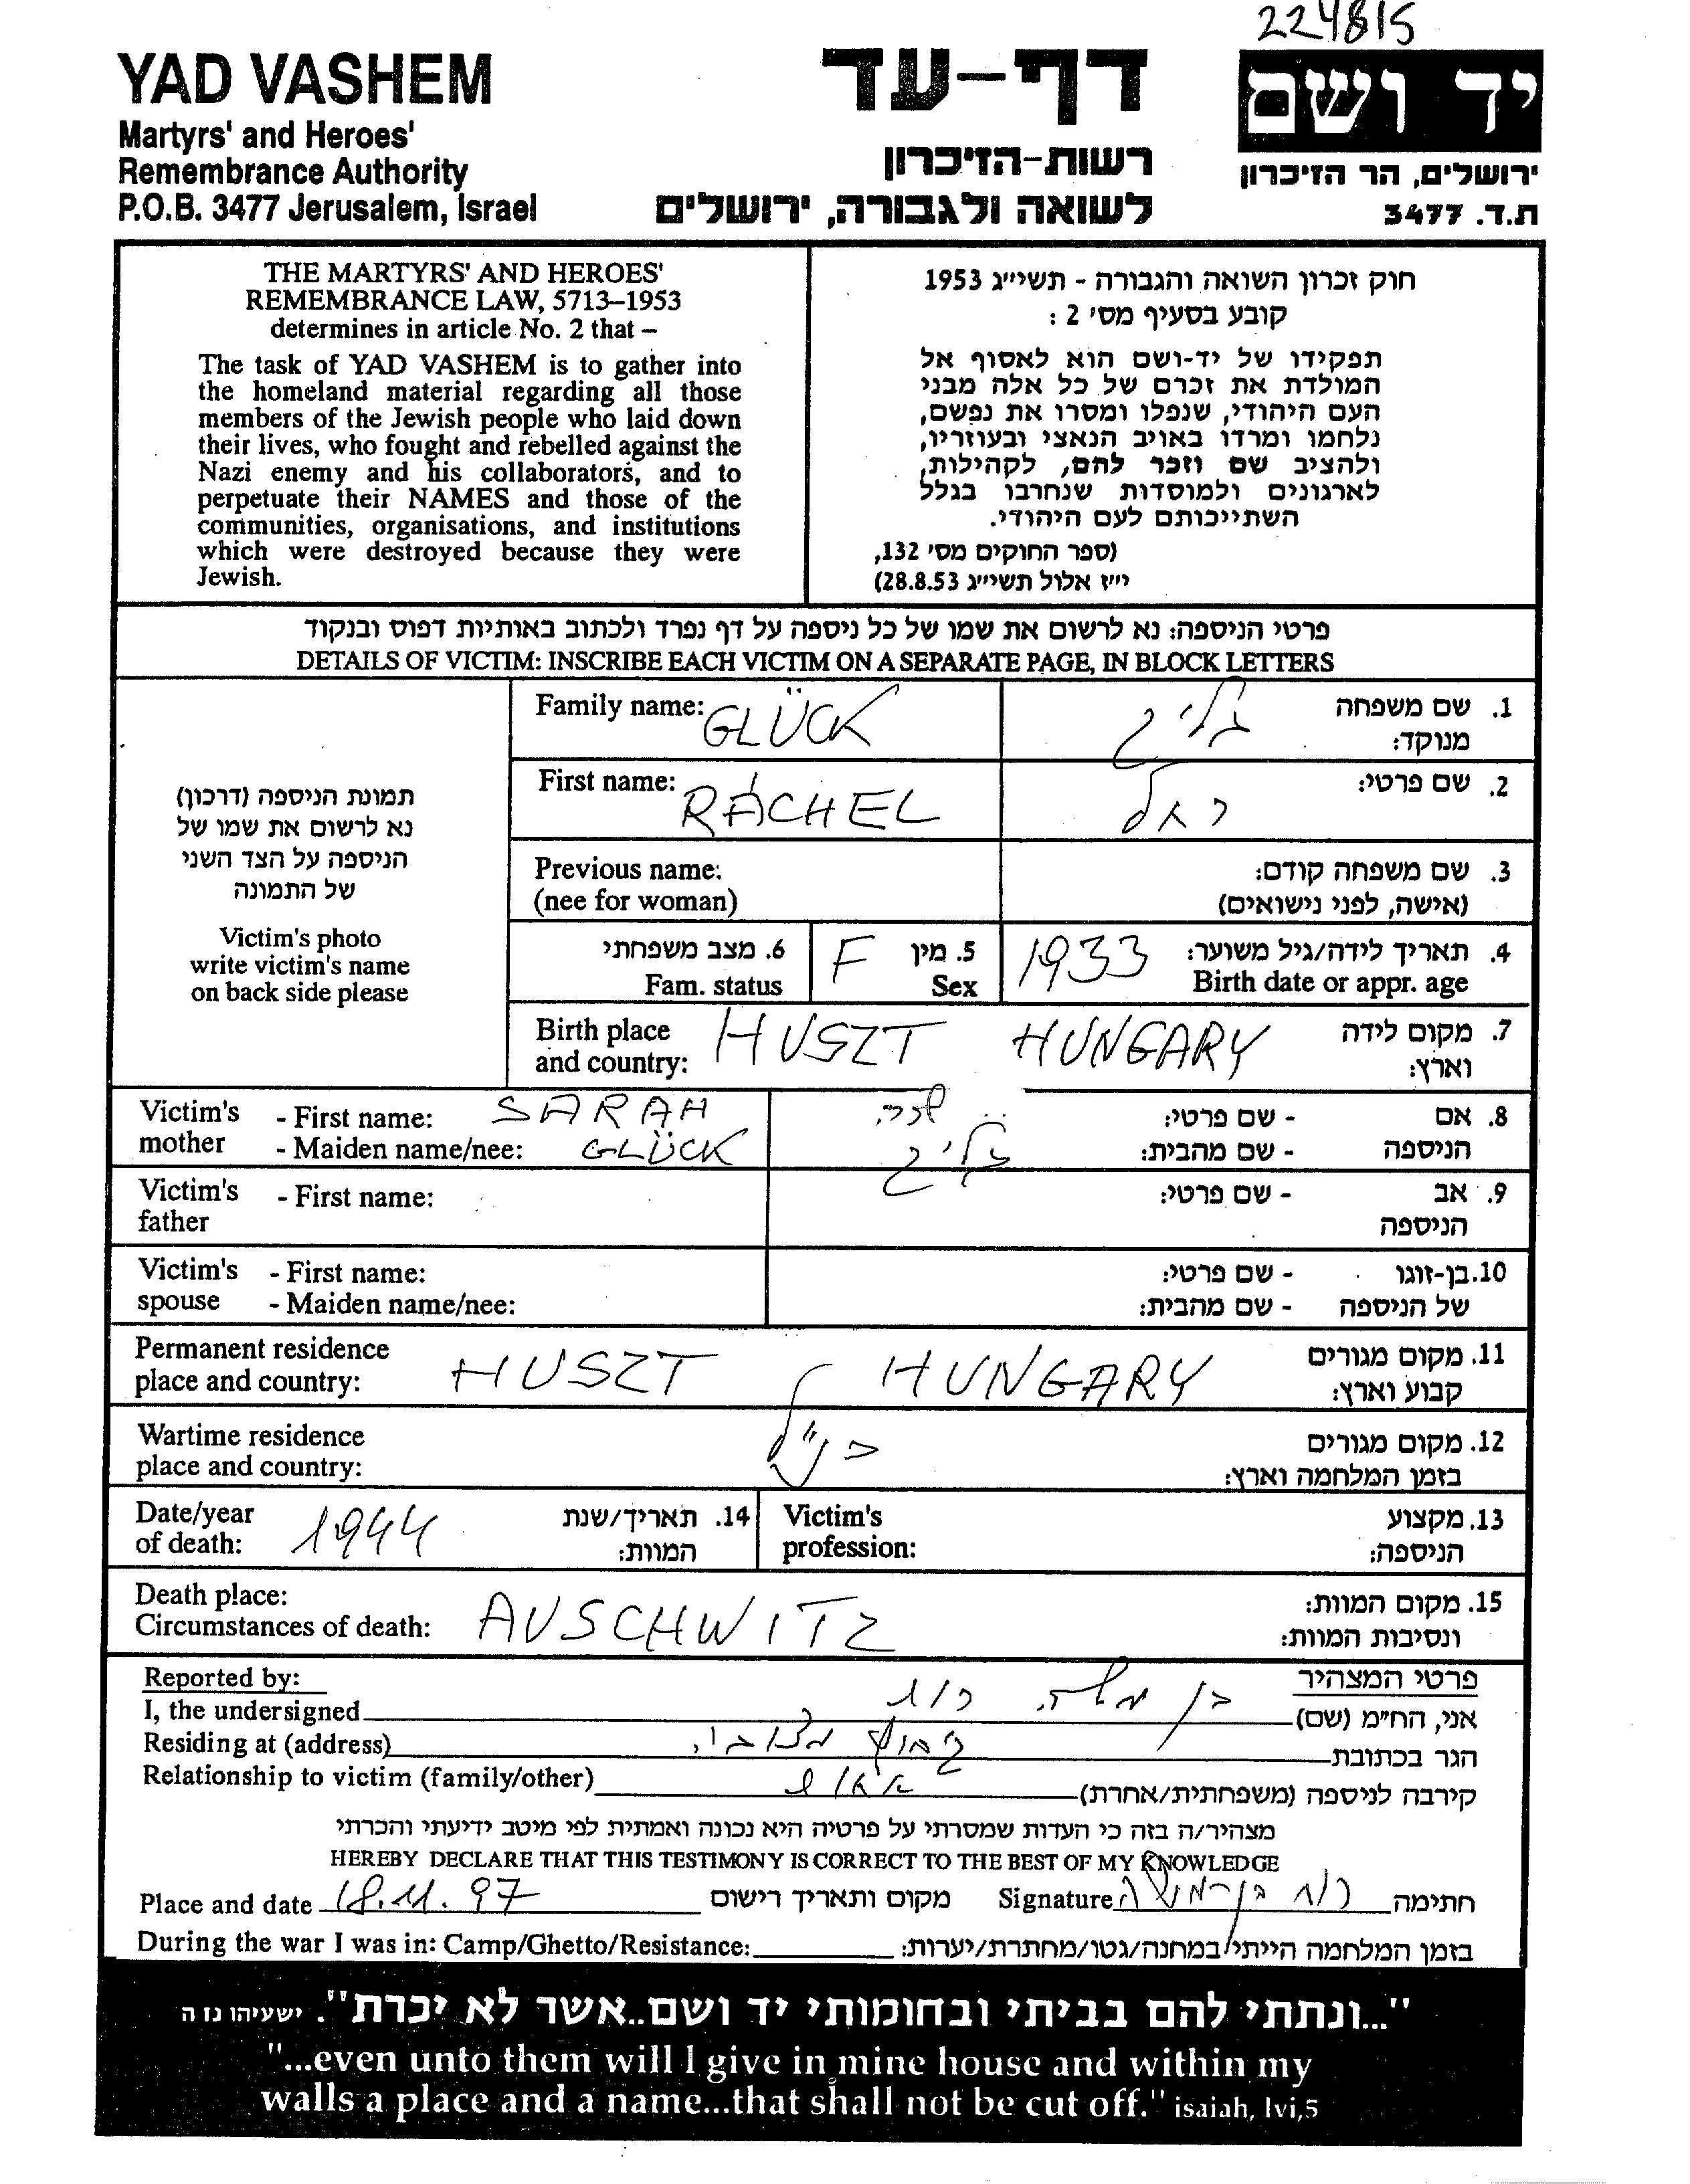 224815
YAD VASHEM
Martyrs' and Heroes'
Remembrance Authority
P.O.B. 3477 Jerusalem, Israel
דף-עד
רשות-הזיכרון
לשואה ולגבורה, ירושלים
יד ושם
ירושלים, הר הזיכרון
ת.ד. 3477
THE MARTYRS' AND HEROES'
REMEMBRANCE LAW, 5713–1953
determines in article No. 2 that –
The task of YAD VASHEM is to gather into
the homeland material regarding all those
members of the Jewish people who laid down
their lives, who fought and rebelled against the
Nazi enemy and his collaborators, and to
perpetuate their NAMES and those of the
communities, organisations, and institutions
which were destroyed because they were
Jewish.
חוק זכרון השואה והגבורה - תשי״ג 1953
קובע בסעיף מס' 2 :
תפקידו של יד-ושם הוא לאסוף אל
המולדת את זכרם של כל אלה מבני
העם היהודי, שנפלו ומסרו את נפשם,
נלחמו ומרדו באויב הנאצי ובעוזריו,
ולהציב שם וזכר להם, לקהילות,
לארגונים ולמוסדות שנחרבו בגלל
השתייכותם לעם היהודי.
(ספר החוקים מס' 132,
י״ז אלול תשי״ג 28.8.53)
פרטי הניספה: נא לרשום את שמו של כל ניספה על דף נפרד ולכתוב באותיות דפוס ובנקוד
DETAILS OF VICTIM: INSCRIBE EACH VICTIM ON A SEPARATE PAGE, IN BLOCK LETTERS
תמונת הניספה (דרכון)
נא לרשום את שמו של
הניספה על הצד השני
של התמונה
Victim's photo
write victim's name
on back side please
Family name: GLÜCK גליק 1. שם משפחה
מנוקד:
First name: RACHEL רחל 2. שם פרטי:
Previous name: 3. שם משפחה קודם:
(nee for woman) (אישה, לפני נישואים)
6. מצב משפחתי F 5. מין 1933 4. תאריך לידה/גיל משוער:
Fam. status Sex Birth date or appr. age
Birth place HUSZT HUNGARY 7. מקום לידה
and country: וארץ:
Victim's - First name: SARAH שרה - שם פרטי: 8. אם
mother - Maiden name/nee: GLÜCK גליק - שם מהבית: הניספה
Victim's - First name: - שם פרטי: 9. אב
father הניספה
Victim's - First name: - שם פרטי: 10. בן-זוגו
spouse - Maiden name/nee: - שם מהבית: של הניספה
Permanent residence HUSZT HUNGARY 11. מקום מגורים
place and country: קבוע וארץ:
Wartime residence כנ"ל 12. מקום מגורים
place and country: בזמן המלחמה וארץ:
Date/year 1944 14. תאריך/שנת Victim's 13. מקצוע
of death: המוות: profession: הניספה:
Death place: 15. מקום המוות:
Circumstances of death: AUSCHWITZ ונסיבות המוות:
Reported by: פרטי המצהיר
I, the undersigned בן משה רות אני, הח״מ (שם)
Residing at (address) קיבוץ הגר בכתובת
Relationship to victim (family/other) אחות קירבה לניספה (משפחתית/אחרת)
מצהיר/ה בזה כי העדות שמסרתי על פרטיה היא נכונה ואמתית לפי מיטב ידיעתי והכרתי
HEREBY DECLARE THAT THIS TESTIMONY IS CORRECT TO THE BEST OF MY KNOWLEDGE
Place and date 18.11.97 מקום ותאריך רישום Signature רות בן-משה חתימה
During the war I was in: Camp/Ghetto/Resistance: בזמן המלחמה הייתי במחנה/גטו/מחתרת/יערות:
"...ונתתי להם בביתי ובחומותי יד ושם..אשר לא יכרת". ישעיהו נז ה
"...even unto them will I give in mine house and within my
walls a place and a name...that shall not be cut off." isaiah, lvi,5